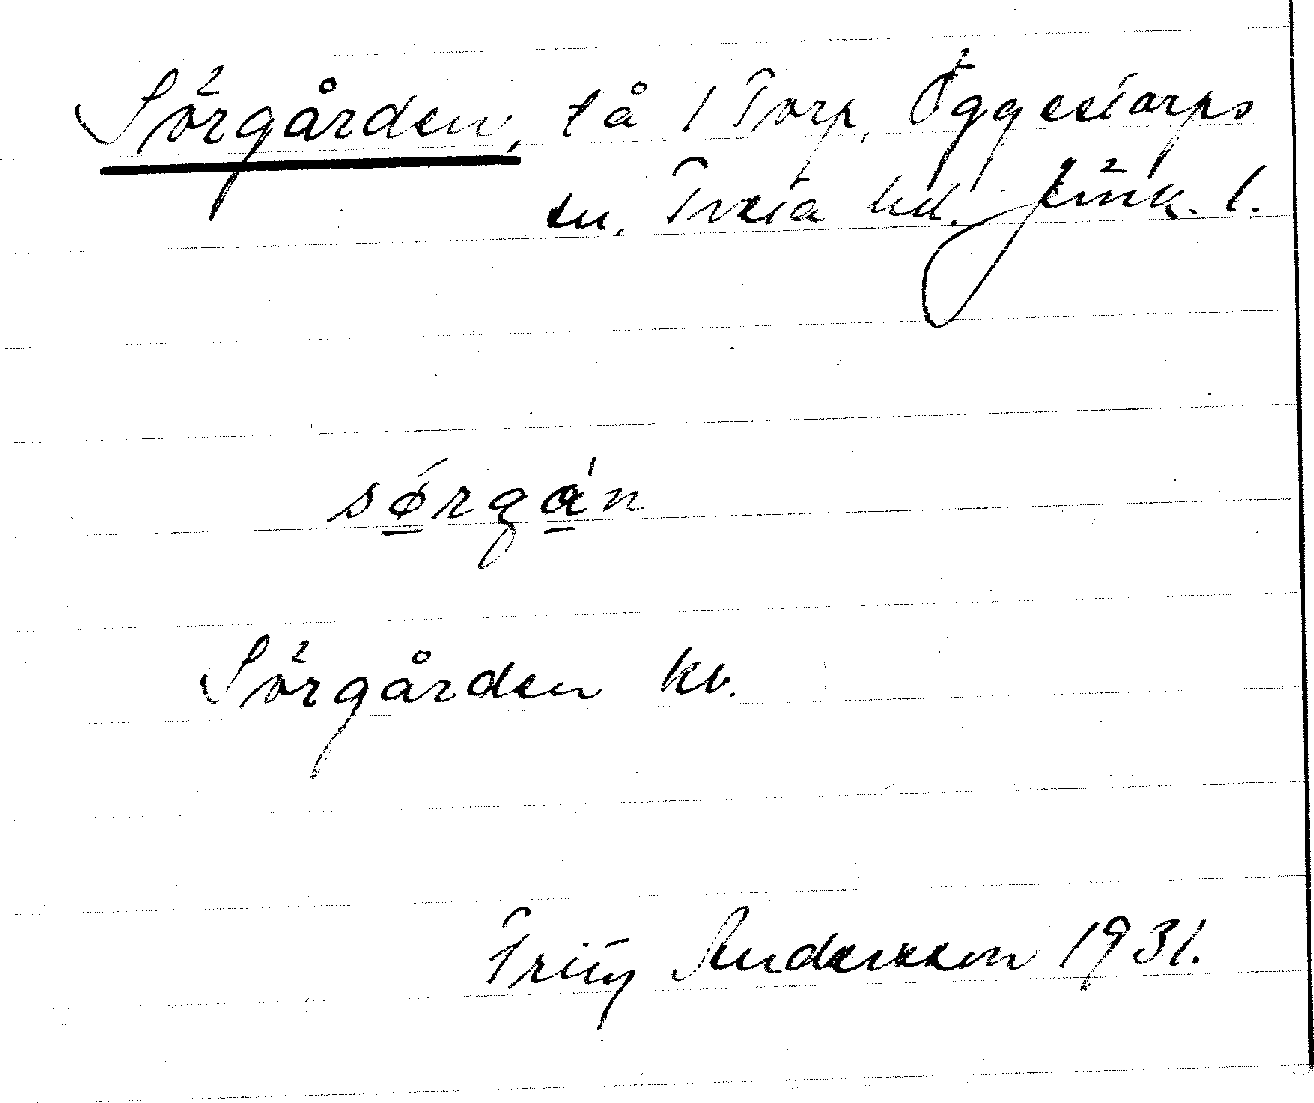 Sörgården, få i Torp, Öggestorps
sn. Tveta hd. Jönk. l.
sørgán
Sörgården kv.
Fritz Andersson 1931.